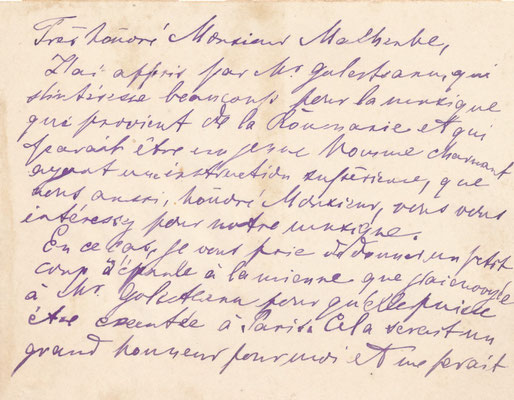 Très honoré Monsieur Malherbe,
J'ai appris par Mr Golestsann, qui
s'intéresse beaucoup pour la musique
qui provient de la Roumanie et qui
parait être un jeune homme charmant
ayant une instruction supérieure, que
vous aussi, honoré Monsieur, vous vous
intéressez pour notre musique.
En ce cas, je vous prie de donner un petit
coup d'épaule à la mienne que j'ai envoyée
à Mr Golesthann pour qu'elle puisse
être exécutée à Paris. Cela serait un
grand honneur pour moi et me ferait